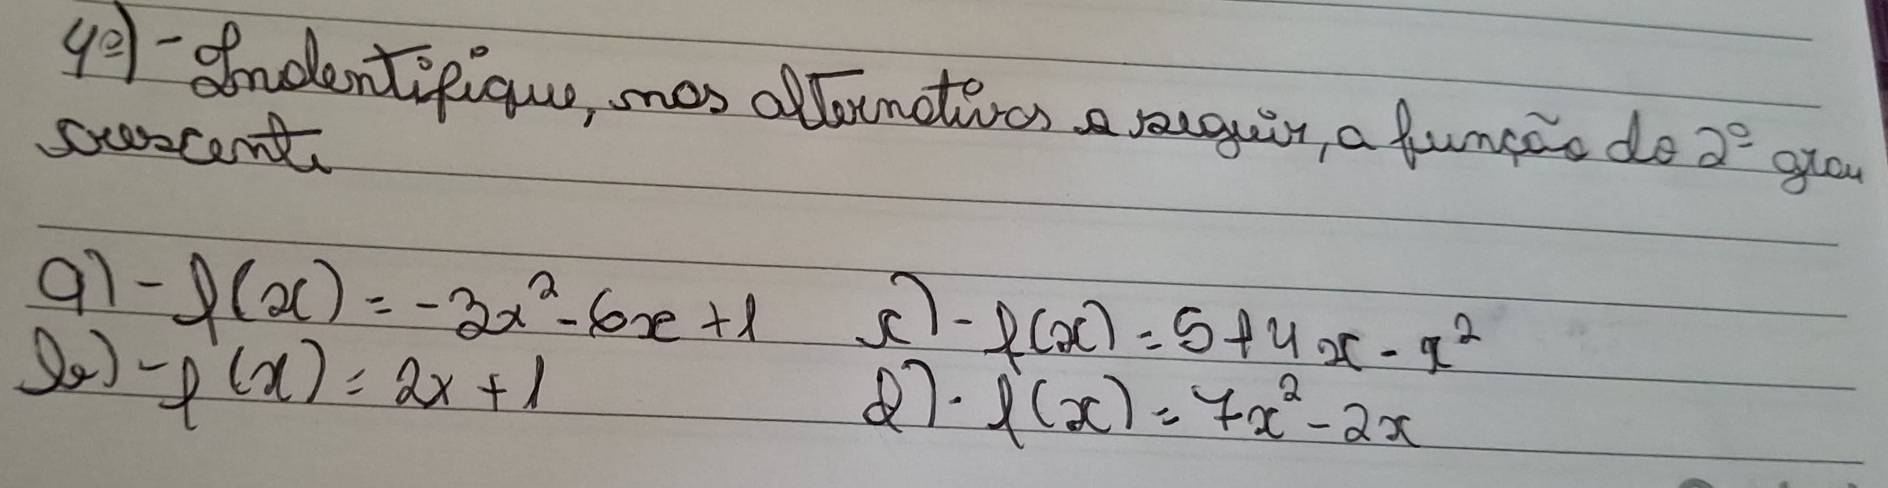 4º)-Indentifique, nas alternativas a seguir, a função do 2º grau
crescente
a)-f(x) = -3x²-6x+1 c)-f(x) = 5+4x-x²
b)-f(x) = 2x+1 d)-f(x) = 7x²-2x